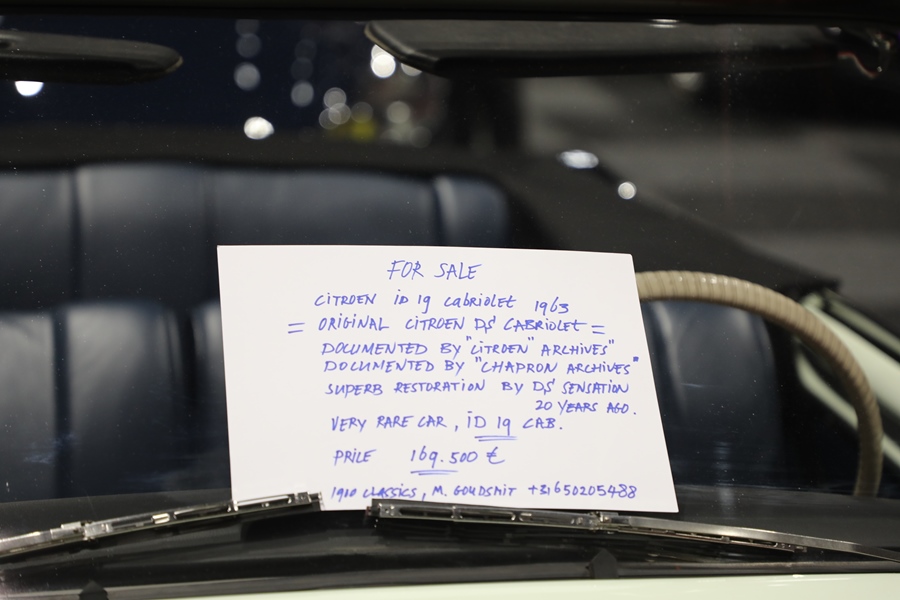 FOR SALE
CITROEN iD 19 cabriolet 1963
= ORIGINAL CITROEN DS CABRIOLET =
DOCUMENTED BY "CITROEN" ARCHIVES"
DOCUMENTED BY "CHAPRON ARCHIVES"
SUPERB RESTORATION BY DS SENSATION
20 YEARS AGO.
VERY RARE CAR, iD 19 CAB.
PRICE 169.500 €
CLASSICS, M. GOUDSMIT +31650205488